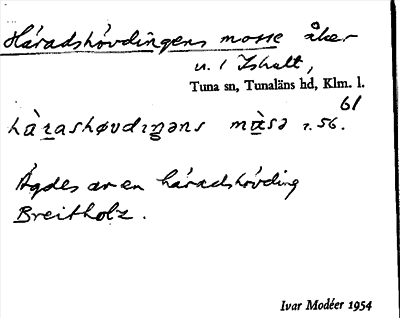 Häradshövdingens mosse åker
u. 1 Ishult,
Tuna sn, Tunaläns hd, Klm. l.
61
hä̀rashøvdıŋəns mɷ̀sə r. 56.
Ägdes av en häradshövding
Breitholz.
Ivar Modéer 1954